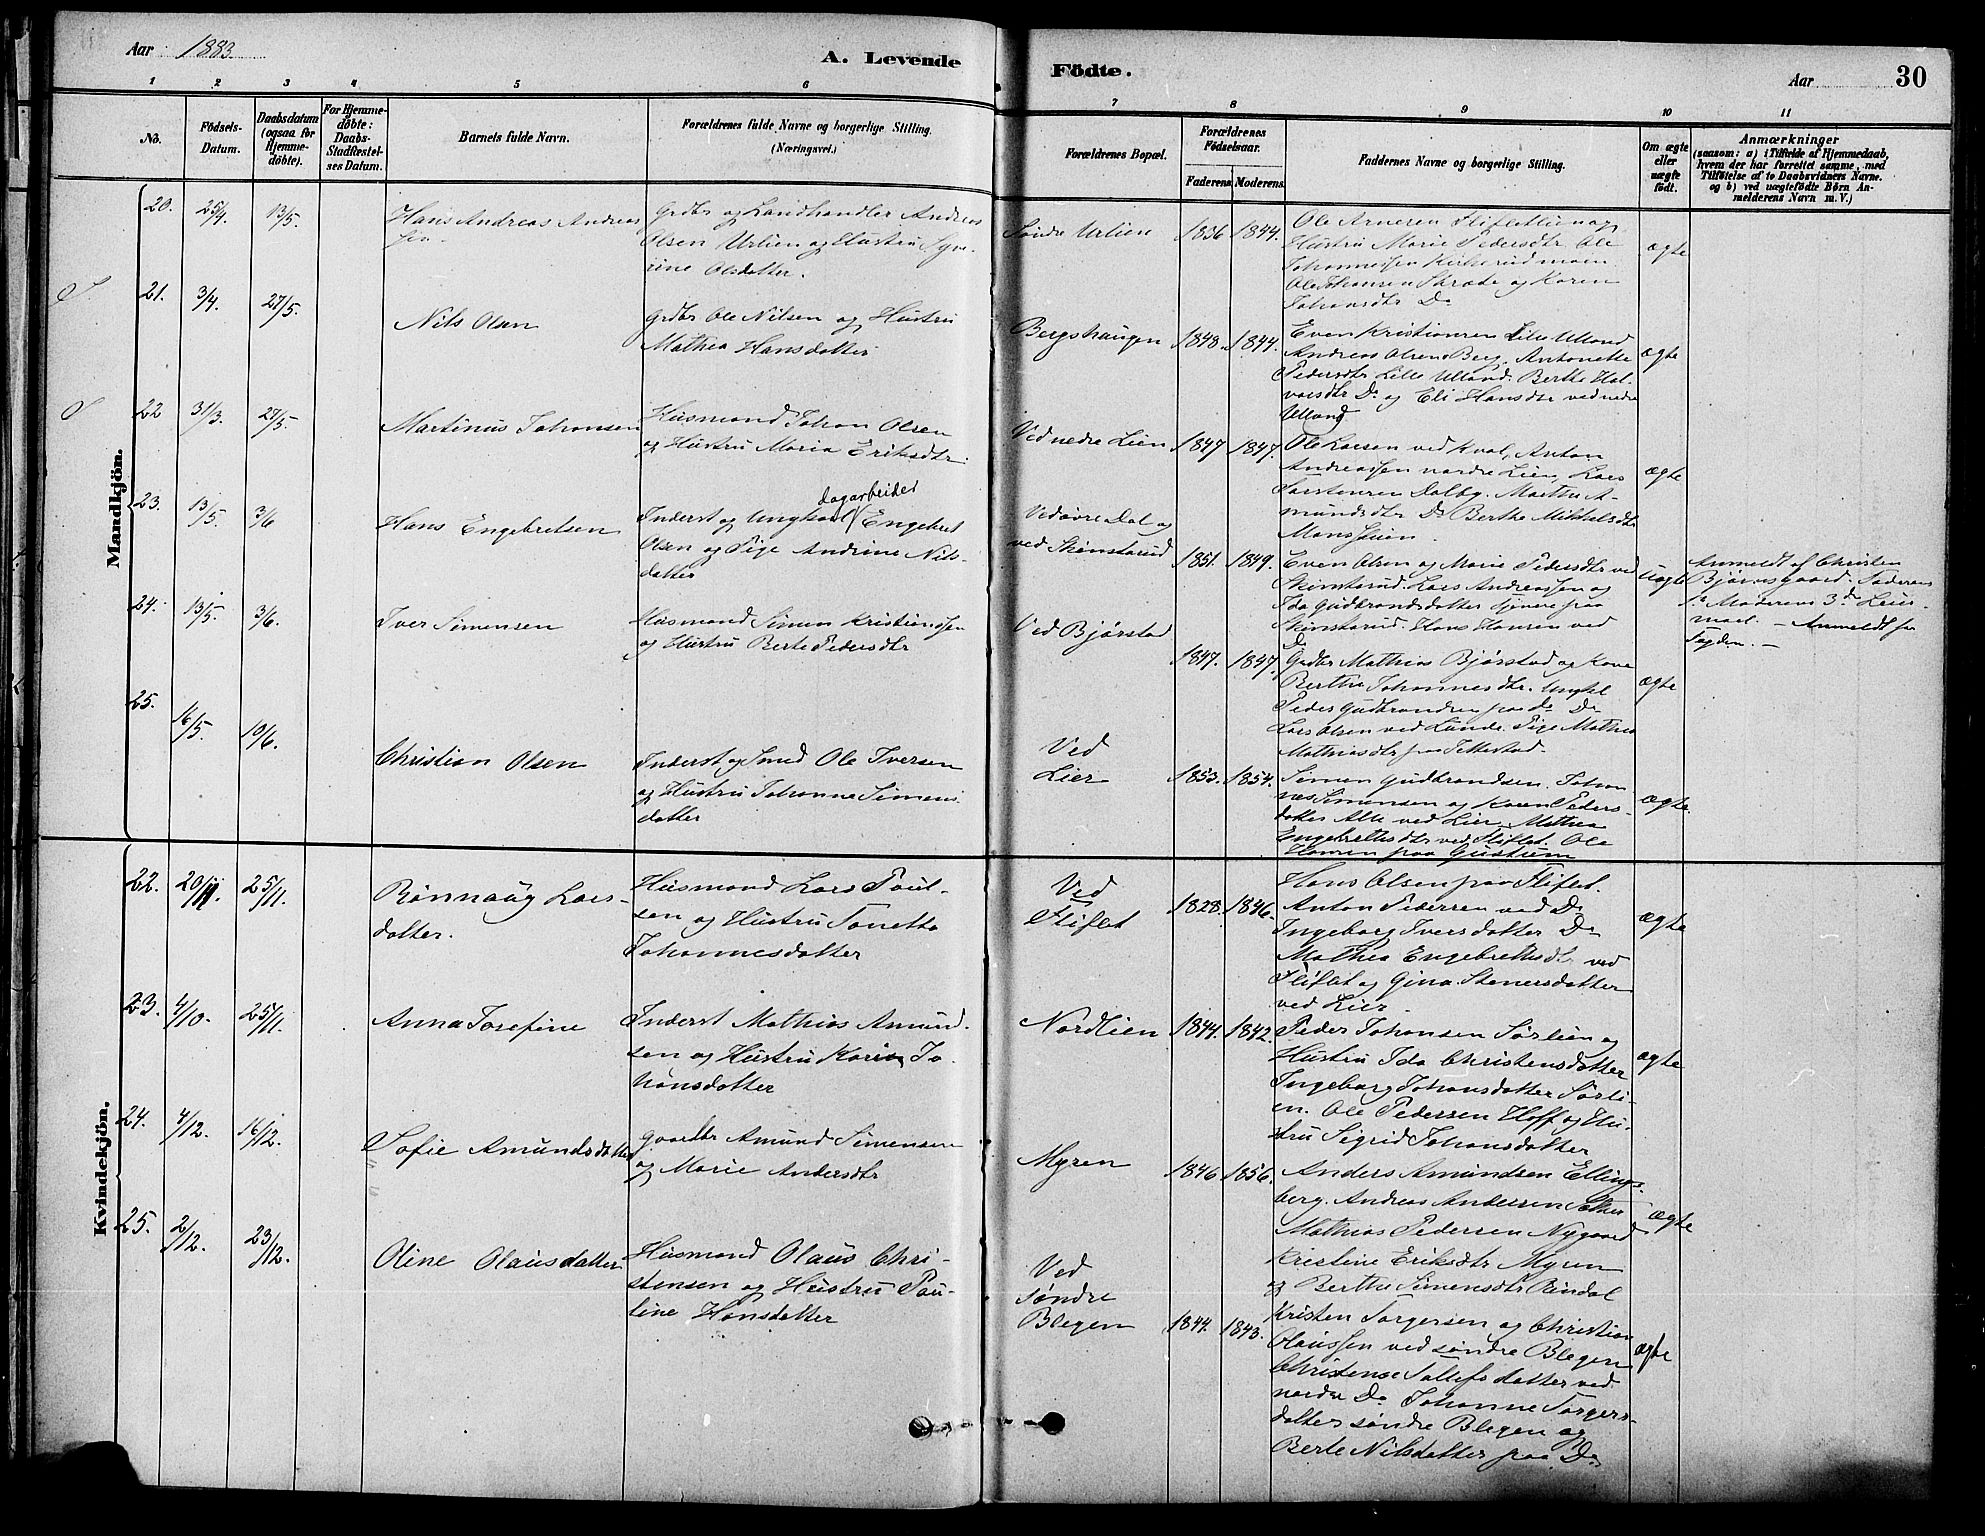 Aar 1883.
A. Levende
Födte.
Aar
30
1 2 3 4 5 6 7 8 9 10 11
No.
Födsels-
Datum.
Daabsdatum
(ogsaa for
Hjemme-
döbte).
For Hjemme-
döbte:
Daabs-
Stadfæstel-
ses Datum.
Barnets fulde Navn.
Forældrenes fulde Navne og borgerlige Stilling.
(Næringsvei.)
Forældrenes Bopæl.
Forældrenes
Födselsaar.
Faderens. Moderens.
Faddernes Navne og borgerlige Stilling.
Om ægte
eller
uægte
födt.
Anmærkninger
(saasom: a) i Tilfælde af Hjemmedaab,
hvem der har forrettet samme, med
Tilföielse af to Daabsvidners Navne.
og b) ved uægtefödte Börn An-
melderens Navn m. V.)
Mandkjön.
20. 25/4 13/5.
Hans Andreas Andreas
sen.
Grdbr og Landhandler Andreas
Olsen Urlien og Hustru Syve-
rine Olsdatter.
Søndre Urlien 1836 1844.
Ole Arnesen Fliflet
Hustru Marie Pedersdtr Ole
Johannessen Kirkerudmoen
Ole Johansen Skrade og Karen
Johansdtr Do
ægte
S. 21. 3/4. 27/5.
Nils Olsen
Grdbr Ole Nilsen og Hustru
Mathea Hansdatter
Bergshaugen 1848. 1844.
Even Kristiansen Lille Ulland
Andreas Olsen Berg, Antonette
Pedersdtr Lille Ulland. Berthe Hal-
vorsdtr Do og Eli Hansdtr ved nedre
Ulland
ægte
S 22 31/3. 27/5.
Martinus Johansen
Husmand Johan Olsen
og Hustru Maria Eriksdtr
Ved nedre Lien 1847 1847.
Ole Larsen ved Kval, Anton
Andreassen nordre Lien, Lars
Torstensen Dalby. Marthe A-
mundsdtr Do Berthe Mikkelsdtr
Monshuien.
ægte
23. 13/5. 3/6
Hans Engebretsen
dagarbeider
Inderst og Ungkarl Engebret
Olsen og Pige Andrine Nils-
datter
Ved øvre Dal og
ved Skinstarud
1851. 1849.
Even Olsen og Marie Pedersdtr ved
Skinstarud. Lars Andreassen og
Ida Gudbrandsdatter tjenere paa
Skinstarud. Hans Hansen ved
Do
uægte
Anmeldt af Christen
Bjørnsgaard. Faderens
Moderens 3de Leier-
maal. – Anmeldt for
Fogden. –
24. 13/5. 3/6.
Iver Simensen
Husmand Simen Kristiansen
og Hustru Berte Pedersdtr
Ved Bjørstad
1847. 1847.
Grdbr Mathias Bjørstad og Kone
Berthe Johannesdtr. Ungkl
Peder Gudbrandsen paa do Do
Lars Olsen ved Lunde. Pige Mathea
Mathiasdtr paa Tekkestad.
ægte
25. 16/5. 10/6.
Christian Olsen
Inderst og Smed Ole Iversen
og Hustru Johanne Simens
datter
Ved
Lier
1853. 1854.
Simen Gudbrandsen. Johan
nes Simensen og Karen Peders-
datter Alle ved Lier. Mathea
Engebretsdtr ved Fliflet. Ole
Hansen paa Gustum
ægte.
Kvindekjön.
22. 20/11 25/11.
Rønnaug Lars-
datter.
Husmand Lars Paul-
sen og Hustru Tonetta
Johannesdatter
Ved
Fliflet
1828. 1846.
Hans Olsen paa Fliflet.
Anton Pedersen ved Do
Ingeborg Iversdatter Do
Mathea Engebretsdtr ved
Fliflet og Gina Stenersdatter
ved Lier.
ægte
23. 4/10. 25/11.
Anna Josefine
Inderst Mathias Amund-
sen og Hustru Karin Jo-
hansdatter
Nordlien 1844. 1842.
Peder Johansen Sørlien og
Hustru Ida Christensdatter
Ingeborg Johansdatter Sørli-
en. Ole Pedersen Hoff og Hu-
stru Sigrid Johansdatter
ægte
24. 4/12. 16/12.
Sofie Amundsdatter
Gaardbr Amund Simensen
og Marie Andersdtr
Myren 1846. 1856.
Anders Amundsen Ellings-
berg. Andreas Andersen Sæther
Mathias Pedersen Nygaard
Kristine Eriksdtr Myren
og Berthe Simensdtr Rindal
ægte
25. 2/12. 23/12.
Oline Olausdatter
Husmand Olaus Chri-
stensen og Hustru Pau-
line Hansdatter
Ved
søndre
Blegen
1844. 1843.
Kristen Torgersen og Christian
Olaussen ved søndre Blegen
Christense Tollefsdatter ved
nordre Do. Johanne Torgers-
datter søndre Blegen og
Berte Nilsdatter paa Do
ægte